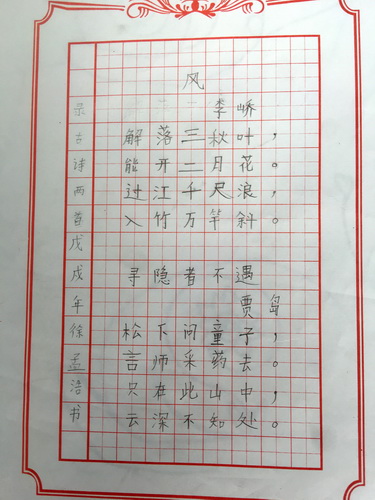 风
李峤
解落三秋叶，
能开二月花。
过江千尺浪，
入竹万竿斜。
寻隐者不遇
贾岛
松下问童子，
言师采药去。
只在此山中，
云深不知处。
录古诗两首戊戌年徐孟浩书